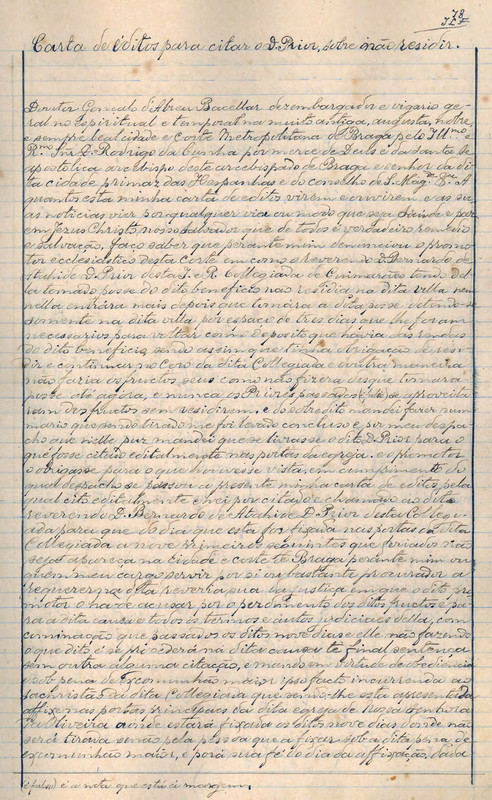 78
Carta de éditos para citar o D. Prior, sobre não residir.
Doutor Gonçalo d'Abreu Bacellar dezembargador e vigario ge-
ral no espiritual e temporal na muito antiga, augusta, nobre
e sempre leal cidade e Corte Metropolitana de Braga pelo Ill.mo e
R.mo Snr. D. Rodrigo da Cunha por merce de Deus e da Santa Sé
apostolica arcebispo deste arcebispado de Braga e senhor da di-
ta cidade primaz das Hespanhas e do conselho de S. Mag.de
quantos esta minha carta de editos virem e ouvirem e as su-
as noticias vier por qualquer via ou modo que seja saude e paz
em Jezus Christo nosso Salvador que de todos é verdadeiro remedio
e salvação, faço saber que perante mim denunciou o promo-
tor ecclesiastico desta Corte em como o reverendo D. Bernardo de
Atahide D. Prior desta I. e R. Collegiada de Guimarães tendo del-
la tomado posse do dito beneficio não residia na dita villa nem
nella entrára mais depois que tomára a dita posse detendo-se
somente na dita villa por espaço de tres dias que lhe foram
necessarios para voltar com deposito que havia das rendas
do dito beneficio, sendo assim que tinha obrigação de resi-
dir e continuar no Coro da dita Collegiada e doutra maneira
não faria os fructos seus como não fizera desque tomara
posse até agora, e nunca os Priores passados (falso) se aproveita-
ram dos fructos sem residirem, e do sobredito mandei fazer sum-
mario que sendo tirado me foi levado concluso e por meu despa-
cho que nelle puz mandei que se livrasse o dito D. Prior para o
que fosse citado editalmente nas portas da egreja e o promotor
o obrigasse para o que houvesse vista, em cumprimento do
qual despacho se passou a presente minha carta de editos pela
qual cito editalmente e hei por citado e chamado ao dito
reverendo D. Bernardo de Atahide D. Prior desta Colle-
giada para que do dia que esta for fixada nas portas da dita
Collegiada a nove primeiros seguintes que feriados não
sejam apareça na cidade e corte de Braga perante mim ou
quem meu cargo servir por si ou bastante procurador a
requerer na dita reverha sua da justiça em que o dito pro-
motor o ha de acusar por o perdimento dos ditos fructos e pa-
ra a dita causa e todos os termos e autos judiciaes della, com
cominação que passados os ditos nove dias e elle não fazendo
o que dito é se procederá na dita causa té final sentença
sem outra alguma citação, e mando em virtude de obediencia
e sob pena de excomunhão maior ipso facto incurrenda ao
sachristão da dita Collegiada que sendo-lhe esta apresentada
affixe nas portas principaes da dita egreja de Nossa Senhora
da Oliveira aonde estará fixada os ditos nove dias donde não
será tirada senão pela pessoa que a fixar sob a dita pena de
excomunhão maior, e porá sua fé do dia da affixação, Dada
(falso) é a nota que está á margem.